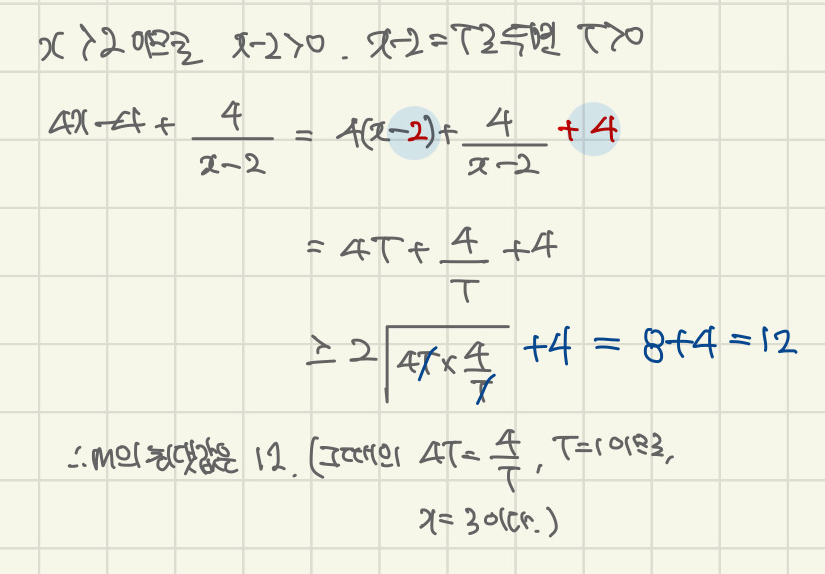 x > 2 이므로 x-2>0 . x-2=T라 두면 T>0
4x-4 + 4/(x-2) = 4(x-2) + 4/(x-2) + 4
= 4T + 4/T + 4
≥ 2√(4T × 4/T) + 4 = 8+4 = 12
∴ m의 최댓값은 12. (그때의 4T = 4/T, T=1이므로,
x=3이다.)